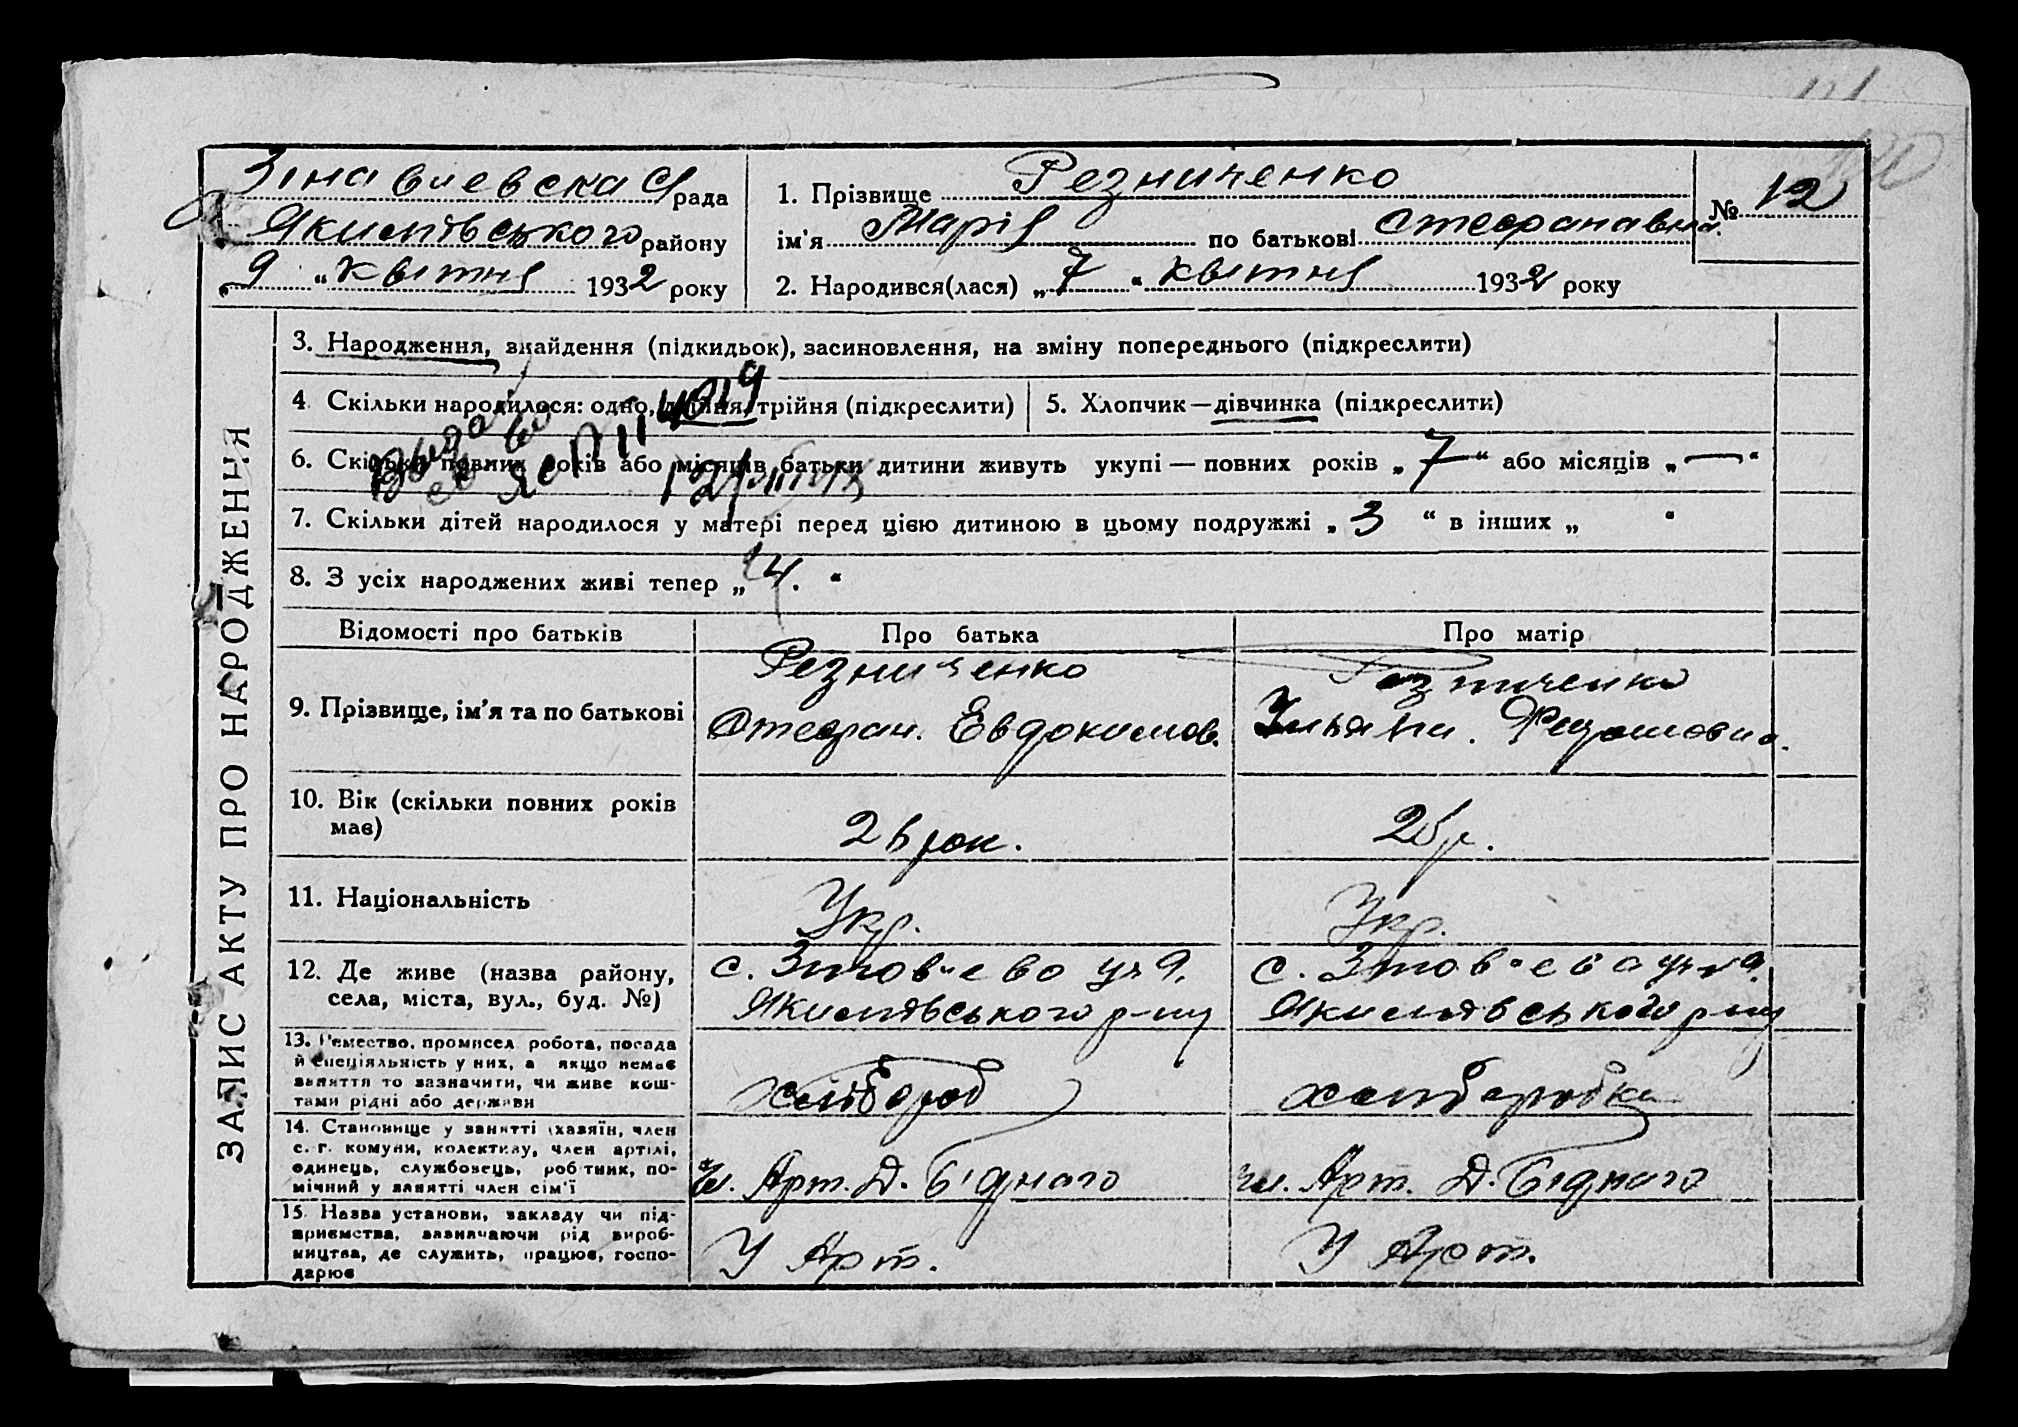 Зіновиевска С/рада
Якимівського району
„9“ Квітня 1932 року
1. Прізвище Резниченко
ім'я Марія по батькові Стефановна
№ 12
2. Народився(лася) „7“ Квітня 1932 року
ЗАПИС АКТУ ПРО НАРОДЖЕННЯ
3. Народження, знайдення (підкидьок), засиновлення, на зміну попереднього (підкреслити)
4. Скільки народилося: одно, двійня, трійня (підкреслити)
5. Хлопчик—дівчинка (підкреслити)
6. Скільки повних років або місяців батьки дитини живуть укупі — повних років „7“ або місяців „—“
7. Скільки дітей народилося у матері перед цією дитиною в цьому подружжі „3“ в інших „ “
8. З усіх народжених живі тепер „4.“
Відомості про батьків
Про батька
Про матір
9. Прізвище, ім'я та по батькові
Резниченко
Стефан. Евдокимов.
Резниченко
10. Вік (скільки повних років
має)
26 рок.
11. Національність
Укр.
Укр.
12. Де живе (назва району,
села, міста, вул., буд. №)
Якимівського р-ну
Якимівського р-ну
13. Ремество, промисел робота, посада
й спеціяльність у них, а якщо немає
заняття то зазначити, чи живе кош-
тами рідні або держави
Хлібороб
хлиборобка
14. Становище у занятті (хазяїн, член
с.-г. комуни, колективу, член артілі,
одинець, службовець, робітник, по-
мічний у занятті член сім'ї
Чл. Арт. Д. Бідного
чл. Арт. Д. Бідного
15. Назва установи, закладу чи під-
приємства, зазначаючи рід вироб-
ництва, де служить, працює, госпо-
дарює
У Арт.
У Арт.